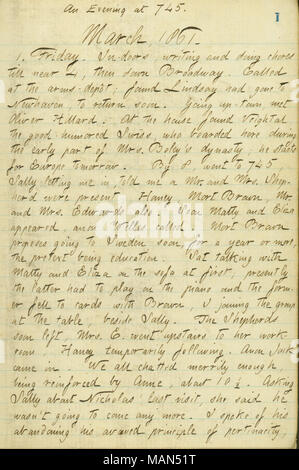 An Evening at 745.
1
March, 1861.
1. Friday. In-doors, writing and doing chores
till near 4; then down Broadway. Called
at the arms-depôt; found Lindsay had gone to
Newhaven, to return soon. Going up-town met
Oliver Hillard. At the house found Voightal
the good-humored Swiss, who boarded here during
the early part of Mrs. Boley's dynasty; he starts
for Europe tomorrow. By 8 went to 745
Sally letting me in, told me a Mr. and Mrs. Shep-
herd were present. Haney, Mort Brown, Mr.
and Mrs. Edwards also. Soon Matty and Eliza
appeared, anon Willis called. Mort Brown
proposes going to Sweden soon, for a year or more,
the pretext being education. Sat talking with
Matty and Eliza on the sofa at first; presently
the latter had to play on the piano and the form-
er fell to cards with Brown, I joining the group
at the table, beside Sally. The Shepherds
soon left, Mrs. E. went upstairs to her work-
room, Haney temporarily following. Anon Jack
came in. We all chatted merrily enough,
being reinforced by Anne, about 10 ½. Asking
Sally about Nicholas' last visit, she said he
wasn't going to come any more. I spoke of his
abandoning his avowed principle of pertinacity,
alamy
alamy
Image ID: MAN51T
www.alamy.com